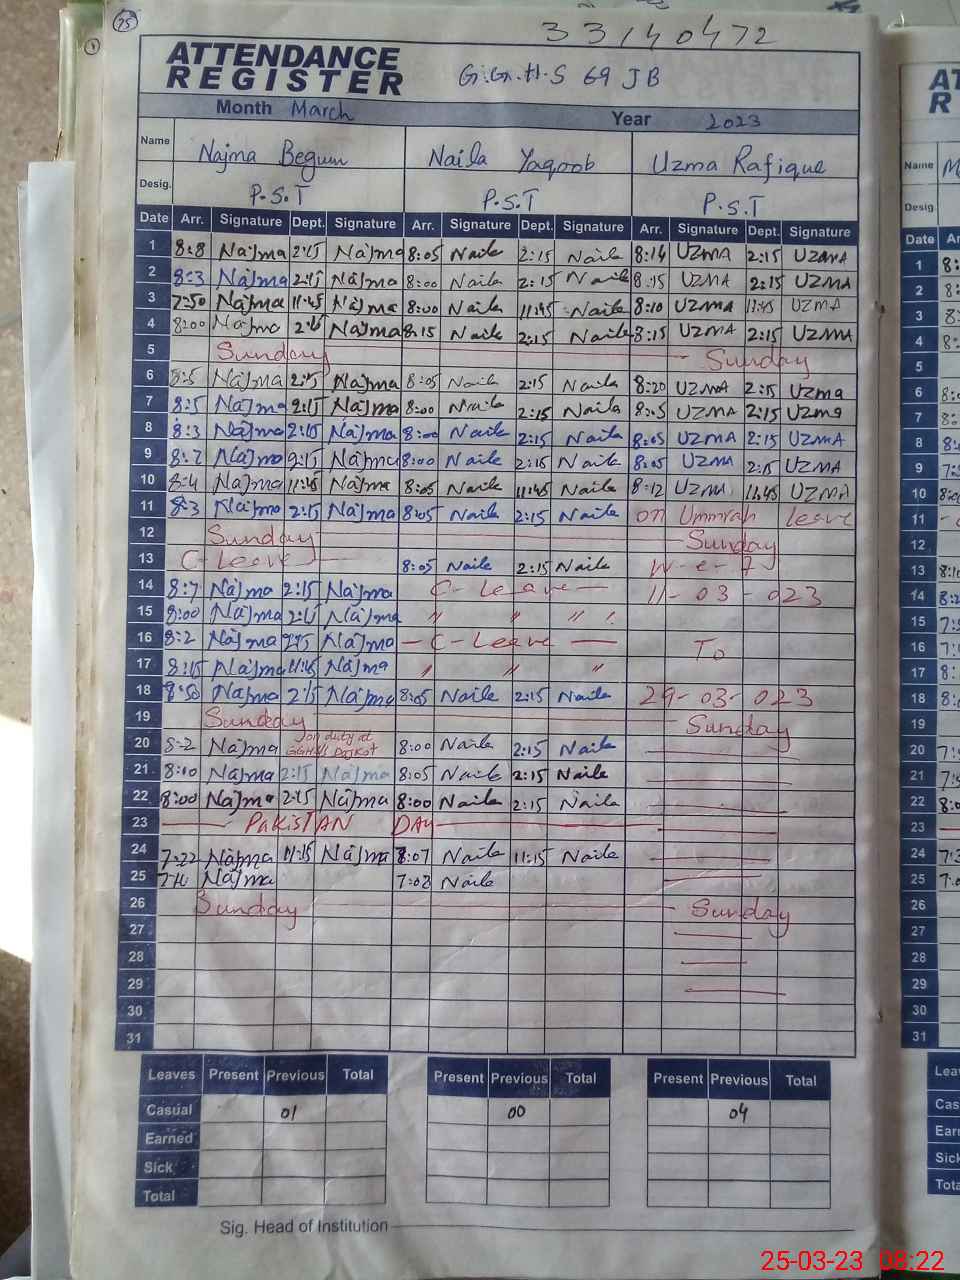 75
33140472
ATTENDANCE
REGISTER
G.G.H.S 69 JB
Month March Year 2023
Name Najma Begum Naila Yaqoob Uzma Rafique
Desig. P.S.T P.S.T P.S.T
Date Arr. Signature Dept. Signature Arr. Signature Dept. Signature Arr. Signature Dept. Signature
1 8:8 Najma 2:15 Najma 8:05 Naila 2:15 Naila 8:14 UZMA 2:15 UZMA
2 8:3 Najma 2:15 Najma 8:00 Naila 2:15 Naila 8:15 UZMA 2:15 UZMA
3 7:50 Najma 11:45 Najma 8:00 Naila 11:45 Naila 8:10 UZMA 11:45 UZMA
4 8:00 Najma 2:15 Najma 8:15 Naila 2:15 Naila 8:15 UZMA 2:15 UZMA
5 Sunday Sunday
6 8:5 Najma 2:15 Najma 8:05 Naila 2:15 Naila 8:20 UZMA 2:15 Uzma
7 8:5 Najma 2:15 Najma 8:00 Naila 2:15 Naila 8:05 UZMA 2:15 Uzma
8 8:3 Najma 2:15 Najma 8:00 Naila 2:15 Naila 8:05 UZMA 2:15 UZMA
9 8:7 Najma 2:15 Najma 8:00 Naila 2:15 Naila 8:05 UZMA 2:15 UZMA
10 8:4 Najma 11:45 Najma 8:05 Naila 11:45 Naila 8:12 UZMA 11:45 UZMA
11 8:3 Najma 2:15 Najma 8:05 Naila 2:15 Naila on Ummrah leave
12 Sunday Sunday
13 C-Leave 8:05 Naila 2:15 Naila w-e-f
14 8:7 Najma 2:15 Najma C-Leave 11-03-023
15 8:00 Najma 2:15 Najma " " "
16 8:2 Najma 2:15 Najma C-Leave To
17 8:15 Najma 11:45 Najma " " "
18 8:50 Najma 2:15 Najma 8:05 Naila 2:15 Naila 29-03-023
19 Sunday Sunday
20 8:2 Najma on duty at 8:00 Naila 2:15 Naila
21 8:10 Najma 2:15 Najma 8:05 Naila 2:15 Naila
22 8:00 Najma 2:15 Najma 8:00 Naila 2:15 Naila
23 PAKISTAN DAY
24 7:22 Najma 11:15 Najma 8:07 Naila 11:15 Naila
25 Najma 7:08 Naila
26 Sunday Sunday
27
28
29
30
31
Leaves Present Previous Total Present Previous Total Present Previous Total
Casual 01 00 04
Earned
Sick
Total
Sig. Head of Institution
25-03-23 08:22